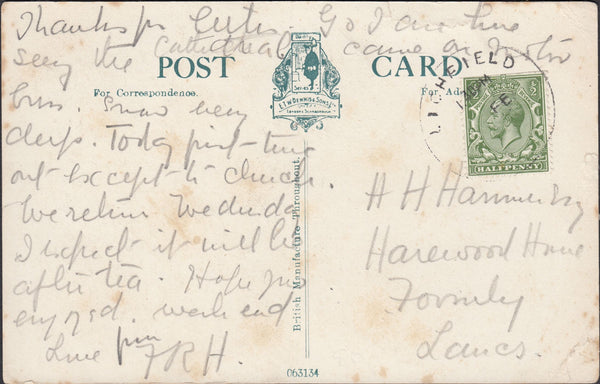 Thanks for letter. So I am here
seeing the Cathedral came on motor
POST CARD
For Correspondence.
bus. Snow very
deep. Today first time
out except to church.
We return Wednesday
I expect it will be
after tea. Hope you
enjoyed week end
Love from
F.R.H.
E.T.W.DENNIS & SONS LTD
LONDON & SCARBOROUGH
British Manufacture Throughout.
063134
For Add
LICHFIELD
FE
HALFPENNY
H H Hammersley
Harewood House
Formby
Lancs.